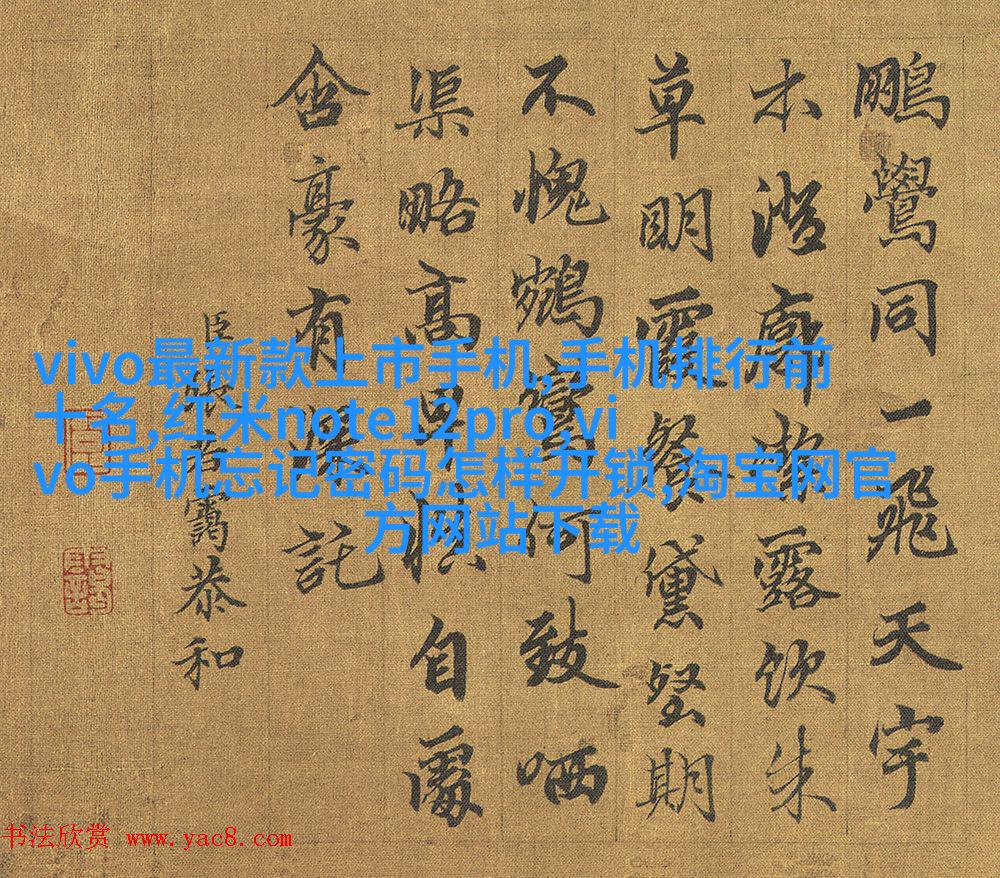 鵬鷽同一飛天宇
木澄廓露飲朱
草明霞餐黛壑期
不愧鶴何致哂
渠略高卑慎自處
含豪有託
臣張若靄恭和
vivo最新款上市手机,手机排行前
十名,红米note12pro,vi
vo手机忘记密码怎样开锁,淘宝网官
方网站下载
书法欣赏 www.yac8.com